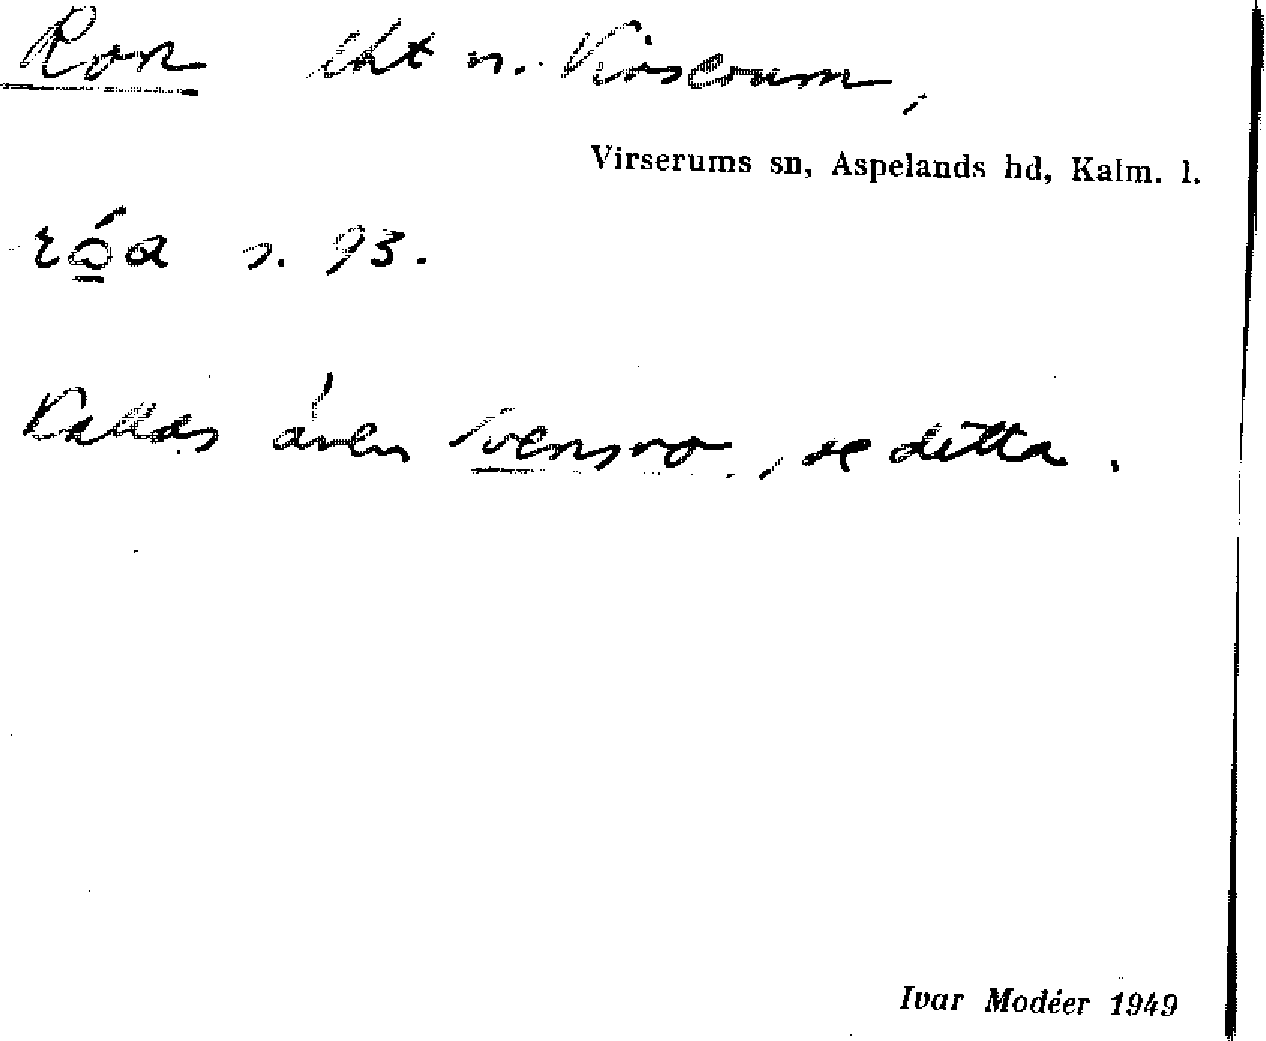 Ron lht n. Virserum,
Virserums sn, Aspelands hd, Kalm. l.
róa s. 93.
Kallas även Svensro, se detta.
Ivar Modéer 1949